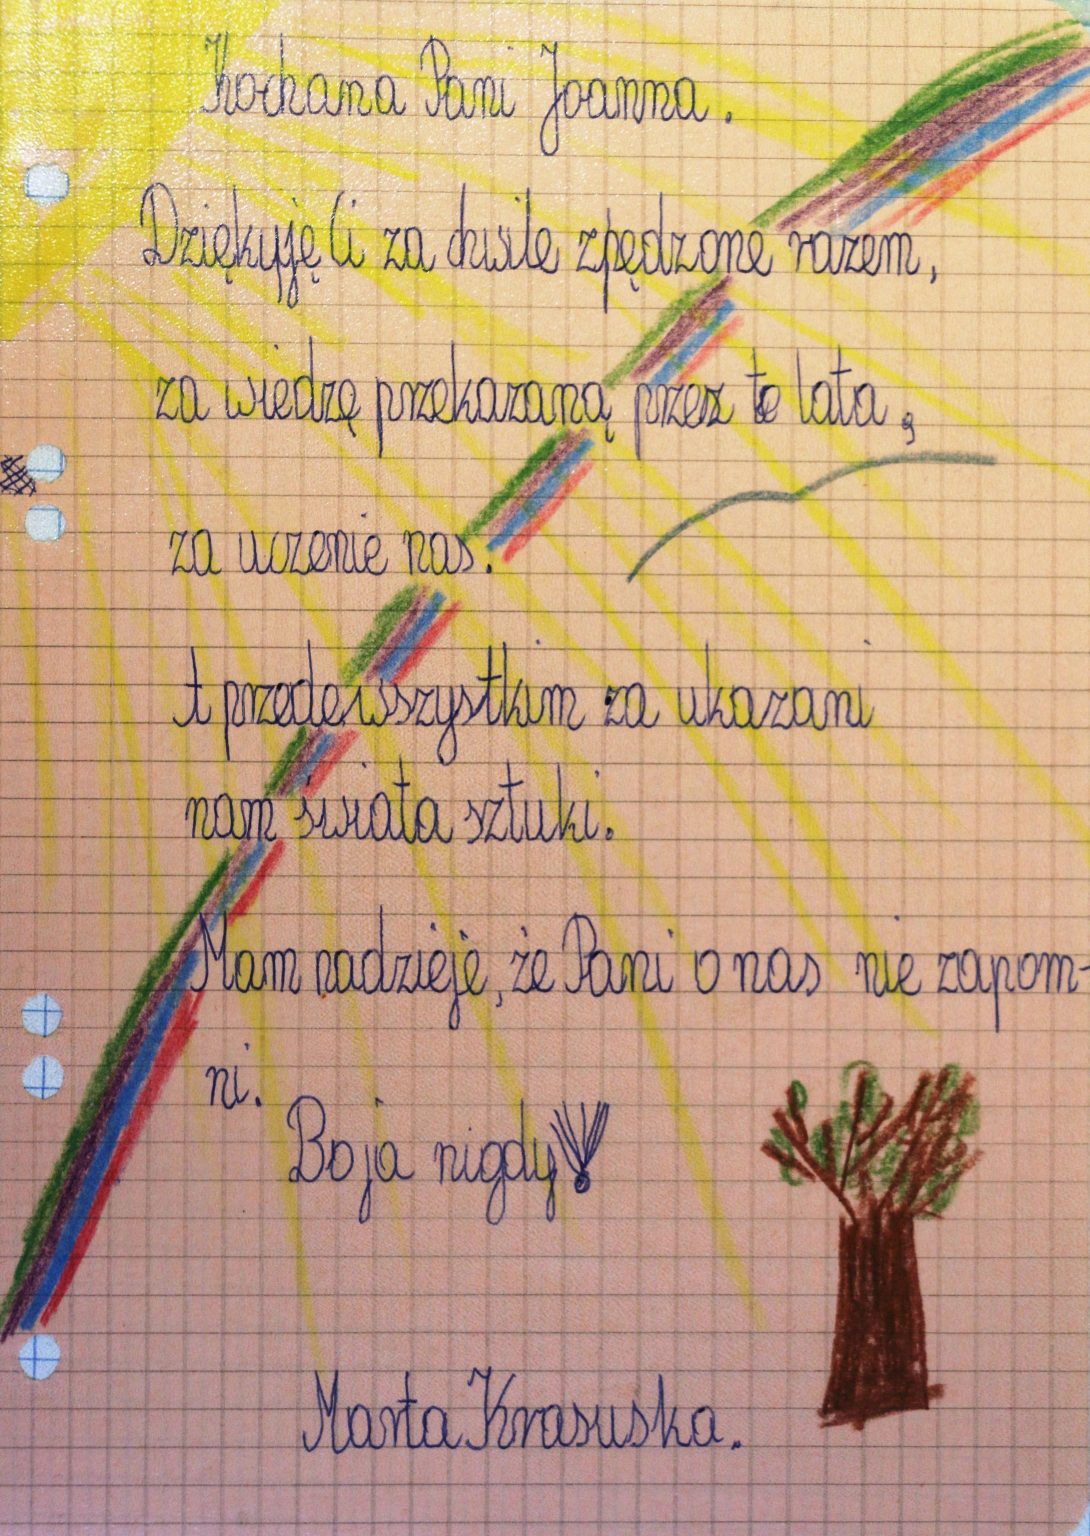 Kochana Pani Joanna.
Dziękyję Ci za chwile zpędzone razem,
za wiedzę przekazaną przez te lata,
za uczenie nas.
A przedewszystkim za ukazani
nam świata sztuki.
Mam nadzieje, że Pani o nas nie zapom-
ni.
Boja nigdy!
Marta Krasuska.